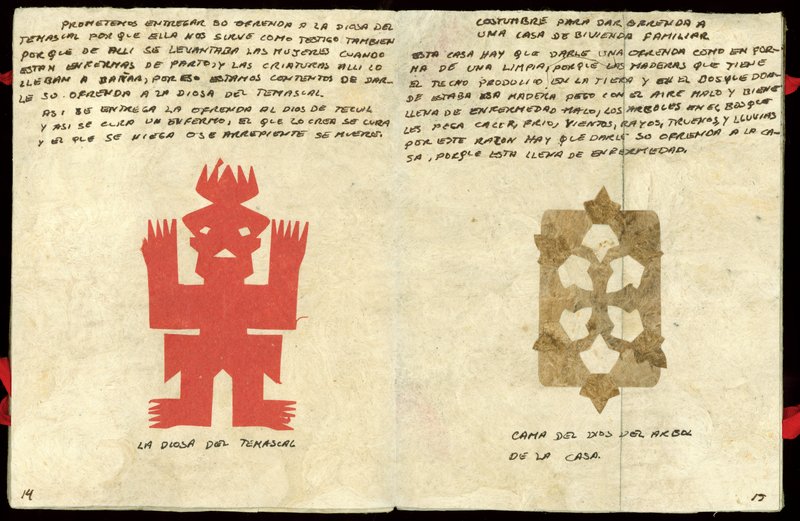 PROMETEMOS ENTREGAR SO OFRENDA A LA DIOSA DEL
TEMASCAL PORQUE ELLA NOS SIRVE COMO TESTIGO TAMBIEN
PORQUE DE ALLI SE LEVANTABA LAS MUJERES CUANDO
ESTAN ENFERMAS DE PARTO; Y LAS CRIATURAS ALLI LO
LLEBAN A BAÑAR; POR ESO ESTAMOS CONTENTOS DE DAR-
LE SO OFRENDA A LA DIOSA DEL TEMASCAL
ASI SE ENTREGA LA OFRENDA AL DIOS DE TECUIL
Y ASI SE CURA UN ENFERMO, EL QUE LO CREA SE CURA
Y EL QUE SE NIEGA O SE ARREPIENTE SE MUERE.
LA DIOSA DEL TEMASCAL
14
COSTUMBRE PARA DAR OFRENDA A
UNA CASA DE BIVIENDA FAMILIAR
ESTA CASA HAY QUE DARLE UNA OFRENDA COMO EN FOR-
MA DE UNA LIMPIA, PORQUE LAS MADERAS QUE TIENE
EL TECHO PRODUCIO EN LA TIERA Y EN EL BOSQUE DON-
DE ESTABA ESA MADERA PEGO CON EL AIRE MALO Y BIENE
LLENA DE ENFERMEDAD MALO, LOS ARBOLES EN EL BOSQUE
LES PEGA CALOR, FRIO, VIENTOS, RAYOS, TRUENOS, Y LLUVIAS
POR ESTE RAZON HAY QUE DARLE SO OFRENDA A LA CA-
SA, PORQUE ESTA LLENA DE ENFERMEDAD.
CAMA DEL DIOS DEL ARBOL
DE LA CASA.
15